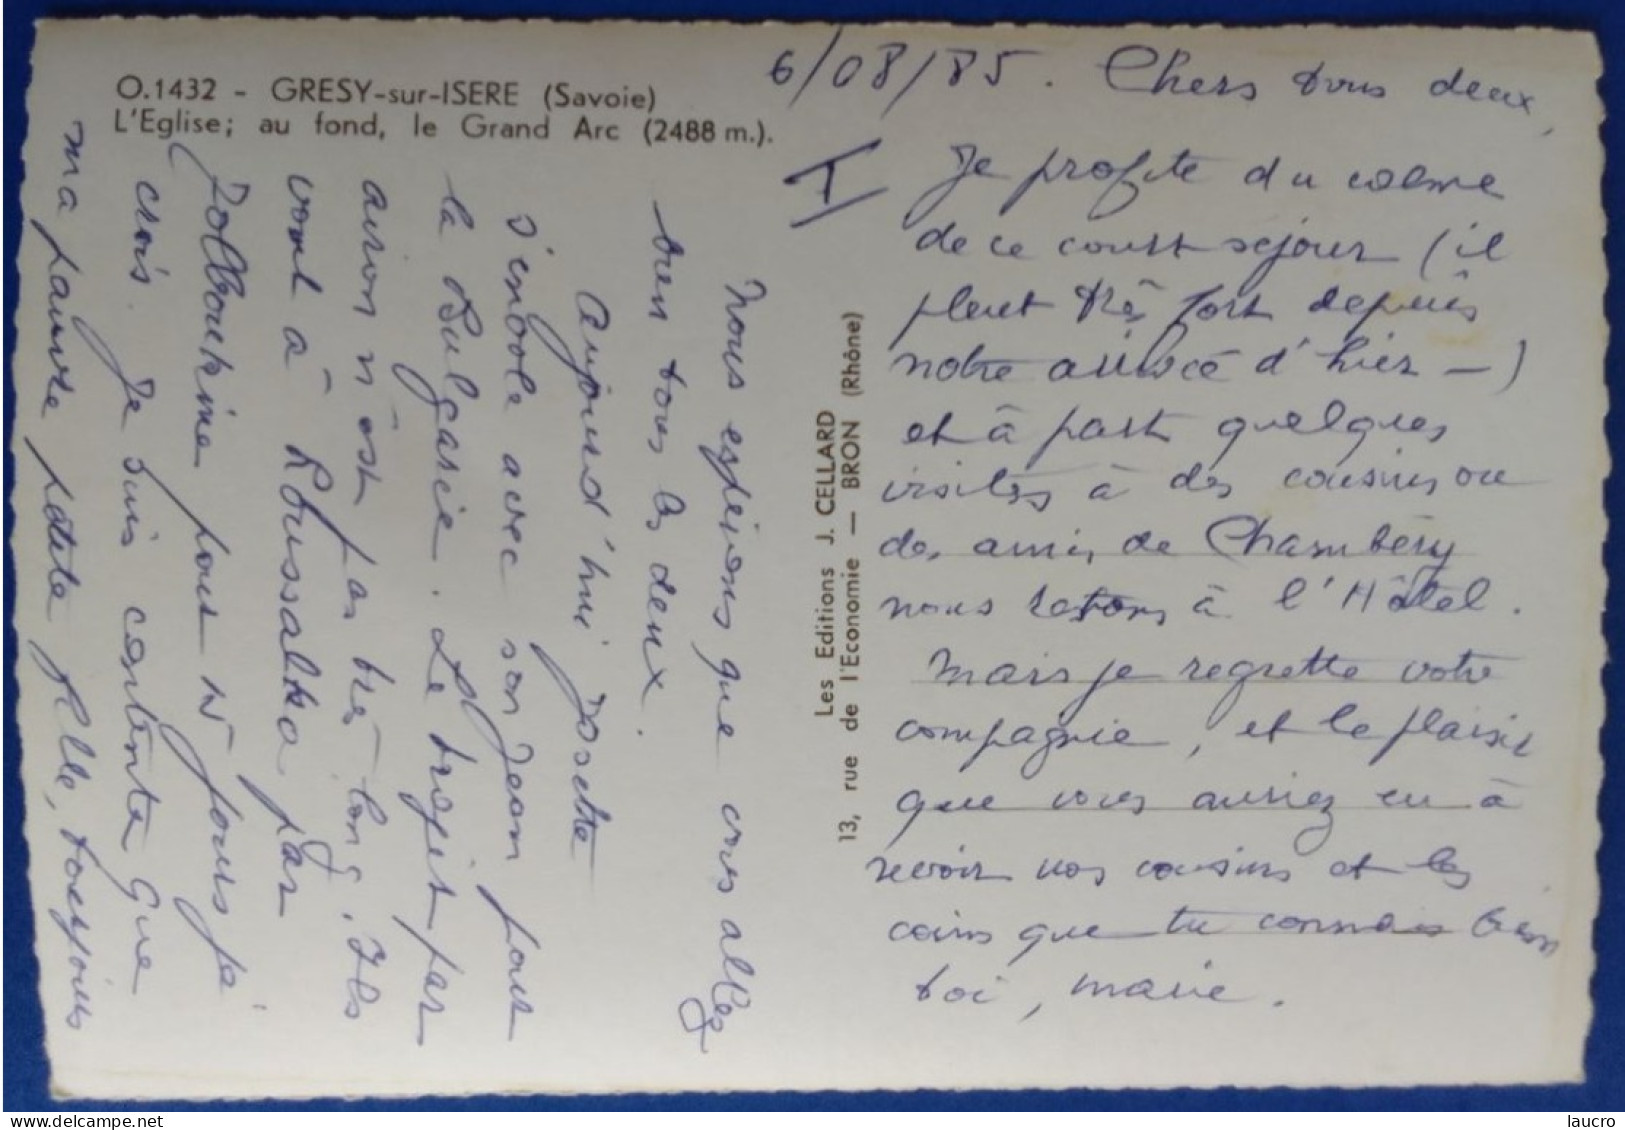 O.1432 - GRESY-sur-ISERE (Savoie)
L'Eglise; au fond, le Grand Arc (2488 m.).
6/08/85. Chers tous deux,
I
Je profite du calme
de ce court séjour (il
pleut très fort depuis
notre arrivée d'hier —)
et à part quelques
visites à des cousins ou
des amis de Chambéry
nous restons à l'Hôtel.
Mais je regrette votre
compagnie, et le plaisir
que vous auriez eu à
revoir nos cousins et les
coins que tu connais bien
toi, Marie.
Les Editions J. CELLARD
13, rue de l'Economie — BRON (Rhône)
Nous espérons que vous allez
bien tous les deux.
Aujourd'hui Josette
s'envole avec son Jean pour
la Bulgarie. Le trajet par
avion n'est pas très long. Ils
vont à Roussalka par
pour 15 jours je
crois. Je suis contente que
ma pauvre petite fille, toujours
laucro